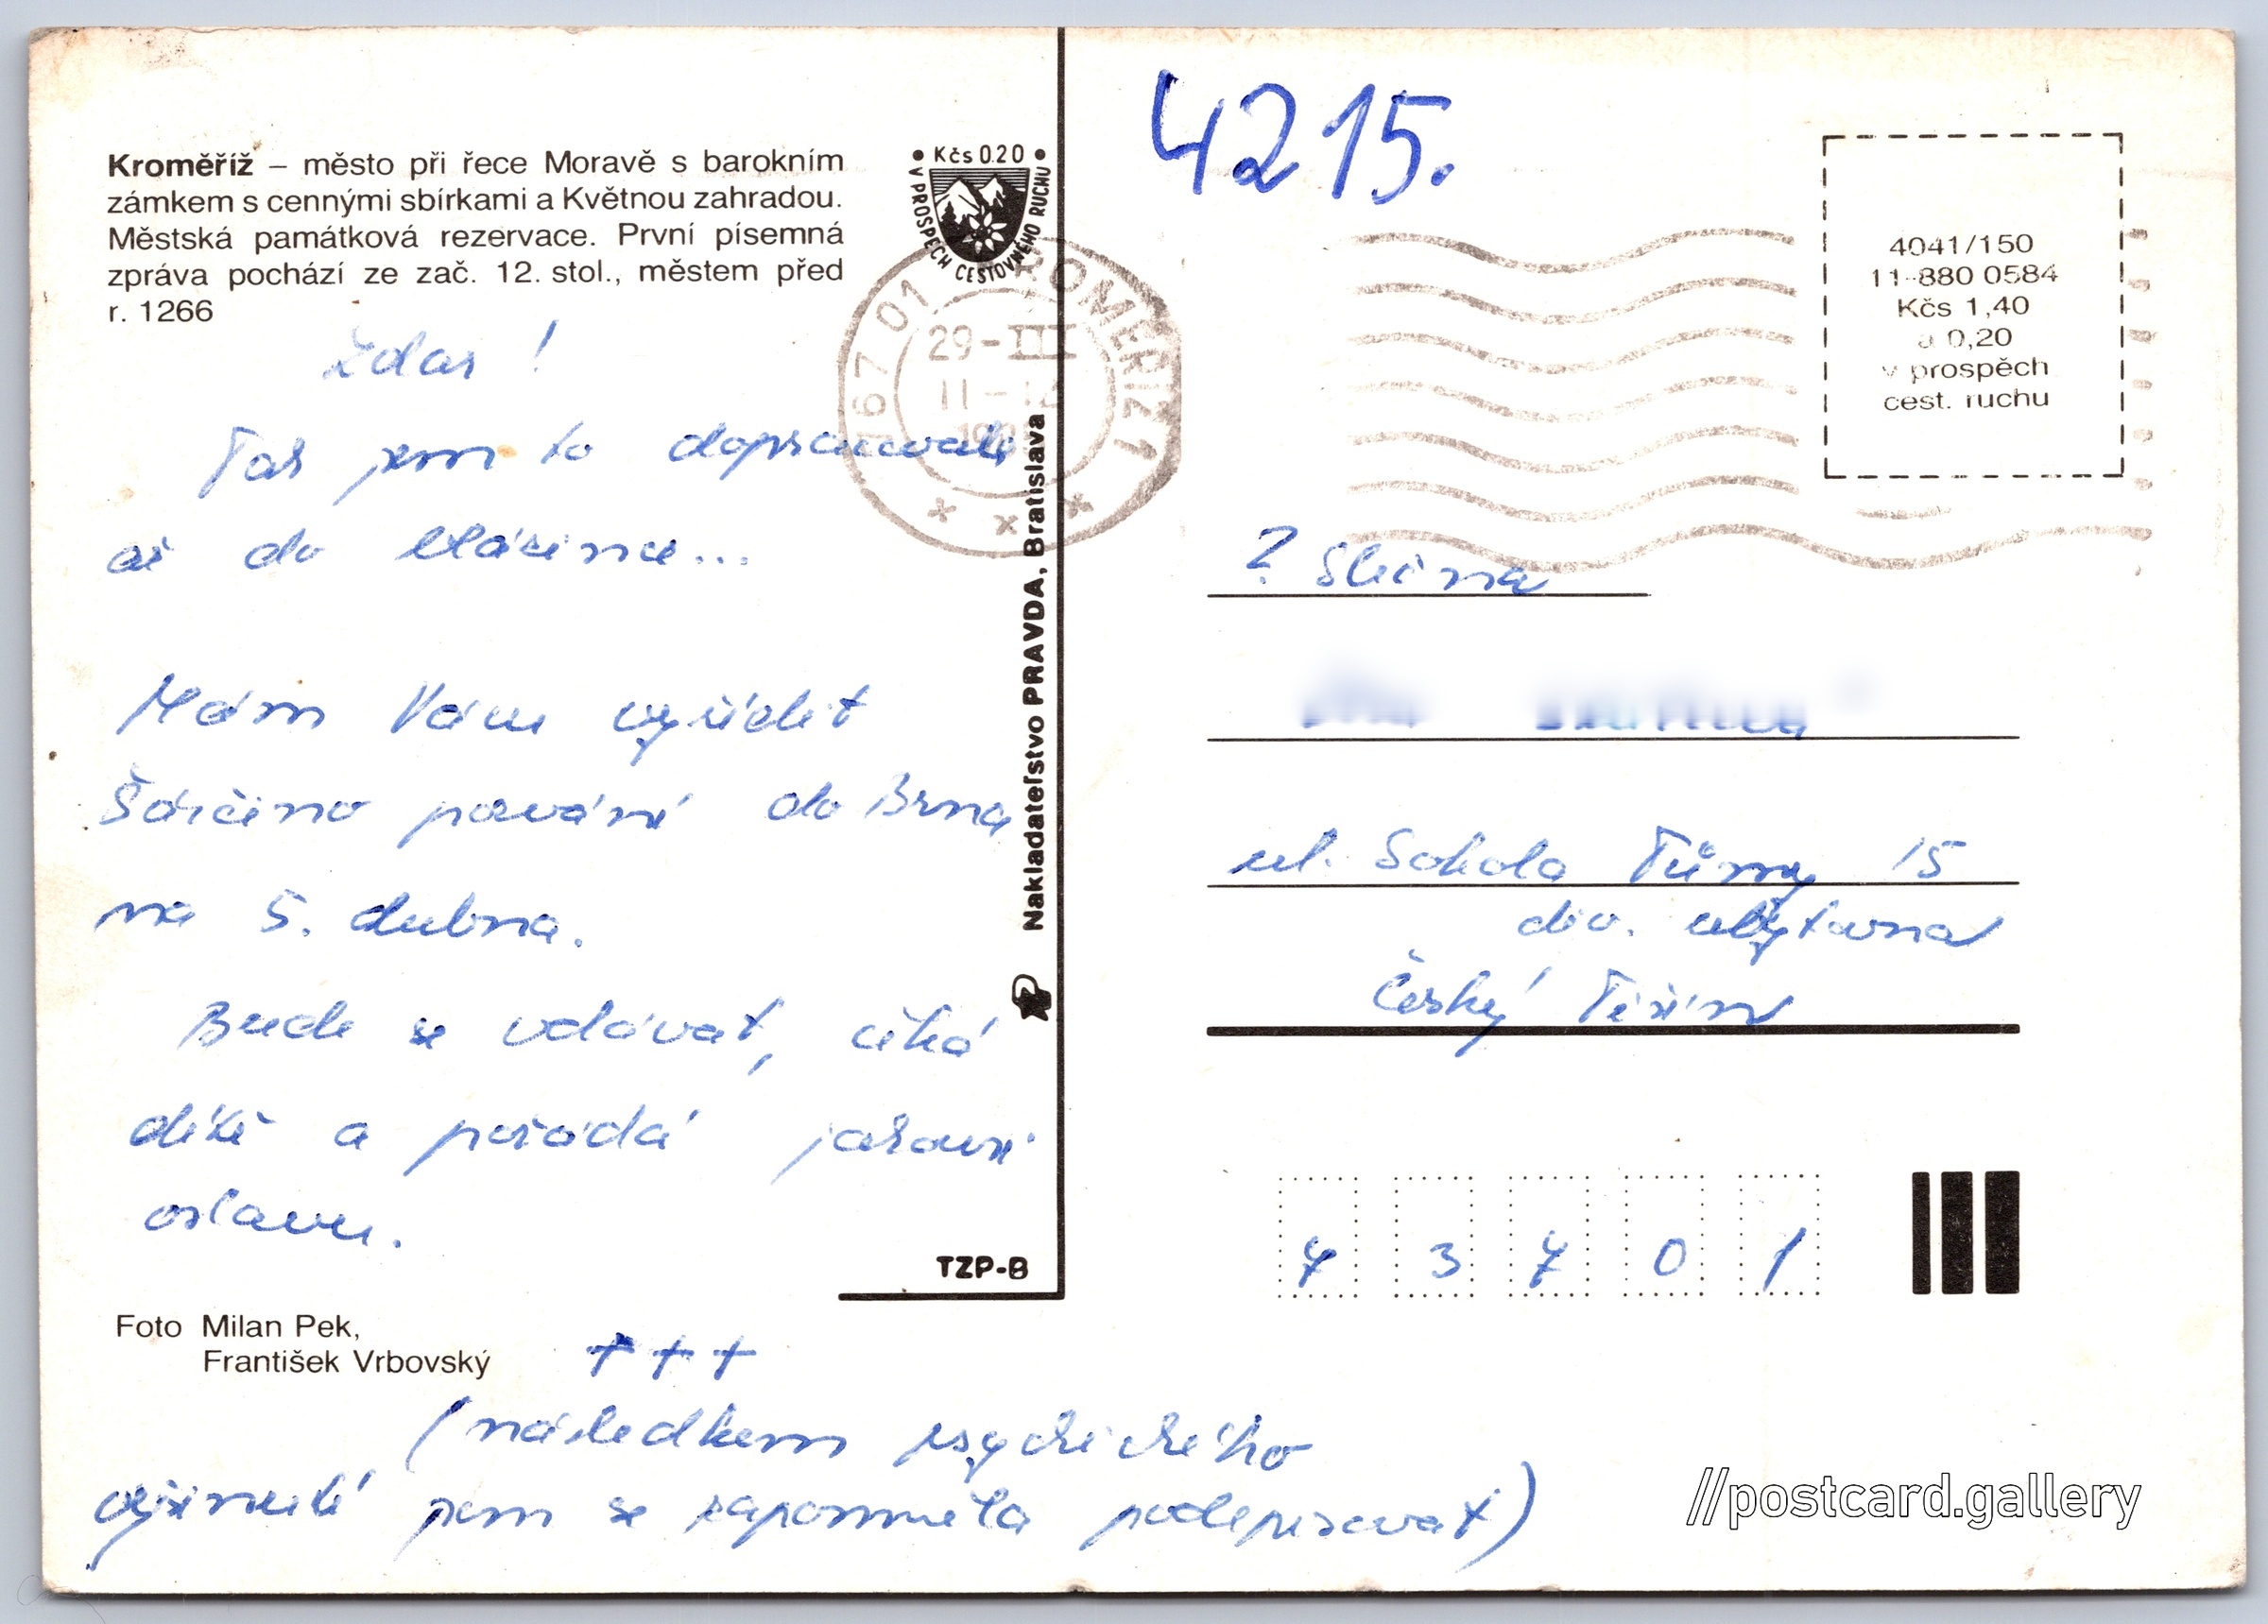 Kroměříž – město při řece Moravě s barokním
zámkem s cennými sbírkami a Květnou zahradou.
Městská památková rezervace. První písemná
zpráva pochází ze zač. 12. stol., městem před
r. 1266
• Kčs 0.20 •
V PROSPECH CESTOVNÉHO RUCHU
Zdar !
Tak jsem to dopracovala
až do blázince...
Mám Vám vyřídit
Šárčino pozvání do Brna
na 5. dubna.
Bude se vdávat, čeká
dítě a pořádá
oslavu.
TZP-B
Foto Milan Pek,
František Vrbovský
+++
(následkem psychického
vyšinutí jsem se zapomněla podepisovat)
Nakladateľstvo PRAVDA, Bratislava
767 01 KROMĚŘÍŽ 1
29-III
4215.
4041/150
11-880 0584
Kčs 1,40
a 0,20
v prospěch
cest. ruchu
Slečna
ul. Sokola Tůmy 15
dív. ubytovna
Český Těšín
7 3 7 0 1
//postcard.gallery